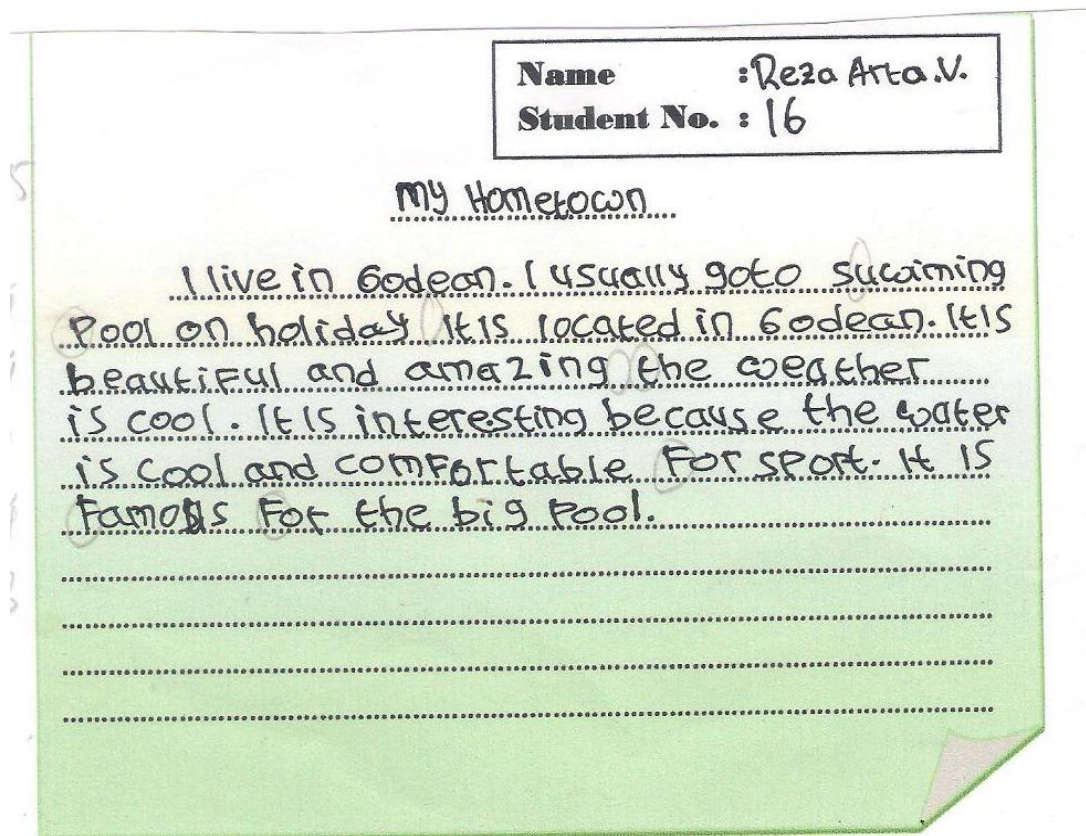 Name : Reza Arta.V.
Student No. : 16
My Hometown
I live in Godean. I usually go to swiming
Pool on holiday It is located in Godean. It is
beautiful and amazing the weather
is cool. It is interesting because the water
is cool and comfortable For sport. It is
Famous For the big Pool.